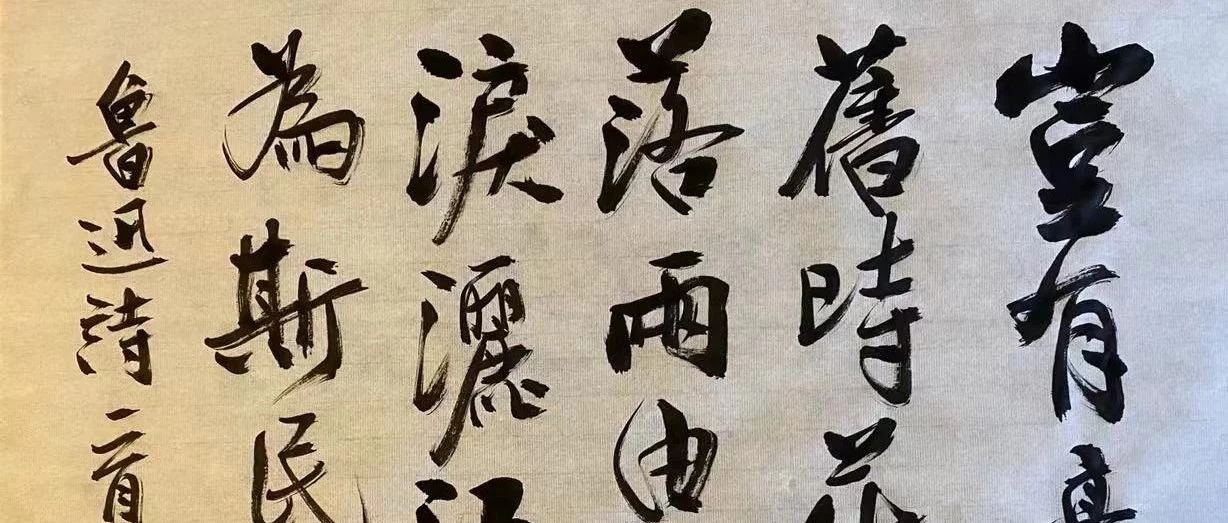 豈有
舊時花
落兩由
淚灑
為斯民
魯迅詩一首